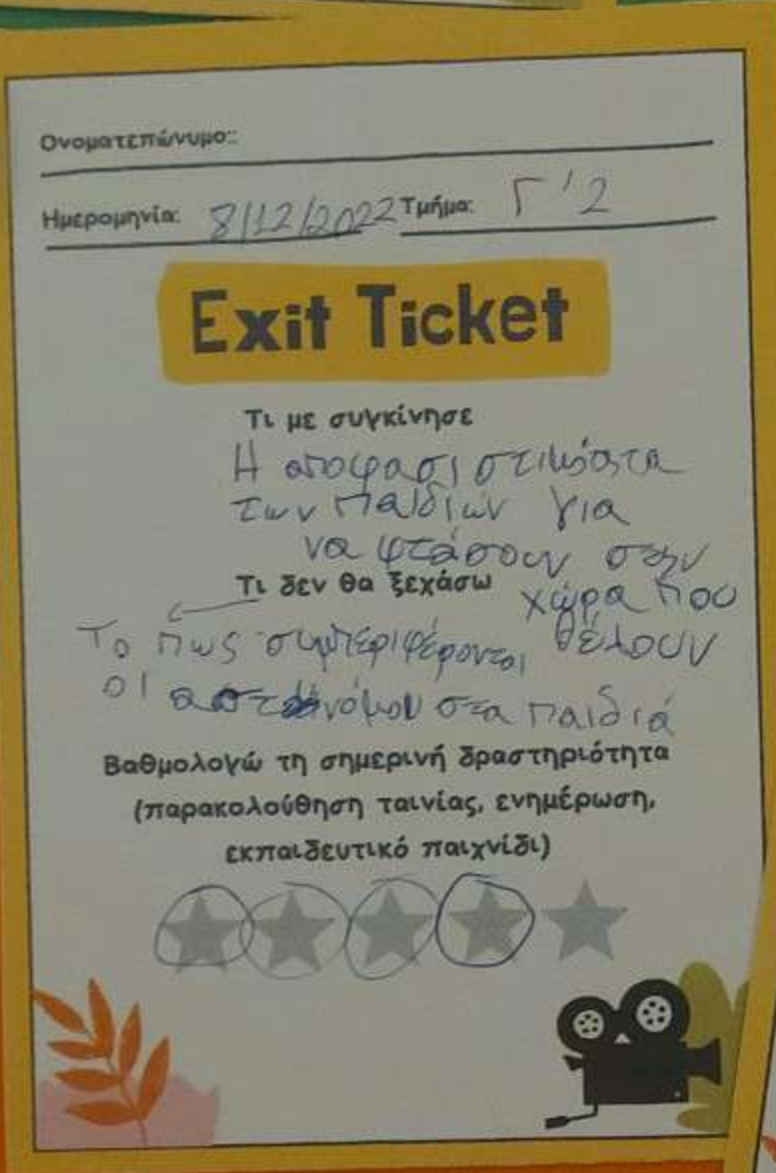 Ονοματεπώνυμο::
Ημερομηνία: 8/12/2022 Τμήμα: Γ'2
Exit Ticket
Τι με συγκίνησε
Η αποφασιστικότητα
των παιδιών για
να φτάσουν στην
χώρα που
θέλουν
Τι δεν θα ξεχάσω
Το πως συμπεριφέρονται
οι αστυνόμοι στα παιδιά
Βαθμολογώ τη σημερινή δραστηριότητα
(παρακολούθηση ταινίας, ενημέρωση,
εκπαιδευτικό παιχνίδι)